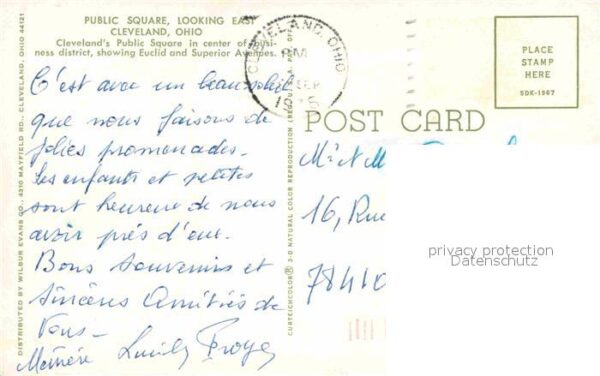 PUBLIC SQUARE, LOOKING EAST
CLEVELAND, OHIO
Cleveland's Public Square in center of busi-
ness district, showing Euclid and Superior Avenues.
C'est avec un beau soleil
que nous faisons de
jolies promenades.
Les enfants et petites
sont heureux de nous
avoir près d'eux.
Bons souvenirs et
Sincères Amitiés de
Nous-
DISTRIBUTED BY WILBUR EVANS CO., 4310 MAYFIELD RD., CLEVELAND, OHIO 44121
CURTEICHCOLOR® 3-D NATURAL COLOR REPRODUCTION (REG. U.S.A. PAT. OFF.)
CLEVELAND, OHIO
PM
SEP
POST CARD
PLACE
STAMP
HERE
SDK-1967
Mr et M
16, Rue
78410
privacy protection
Datenschutz